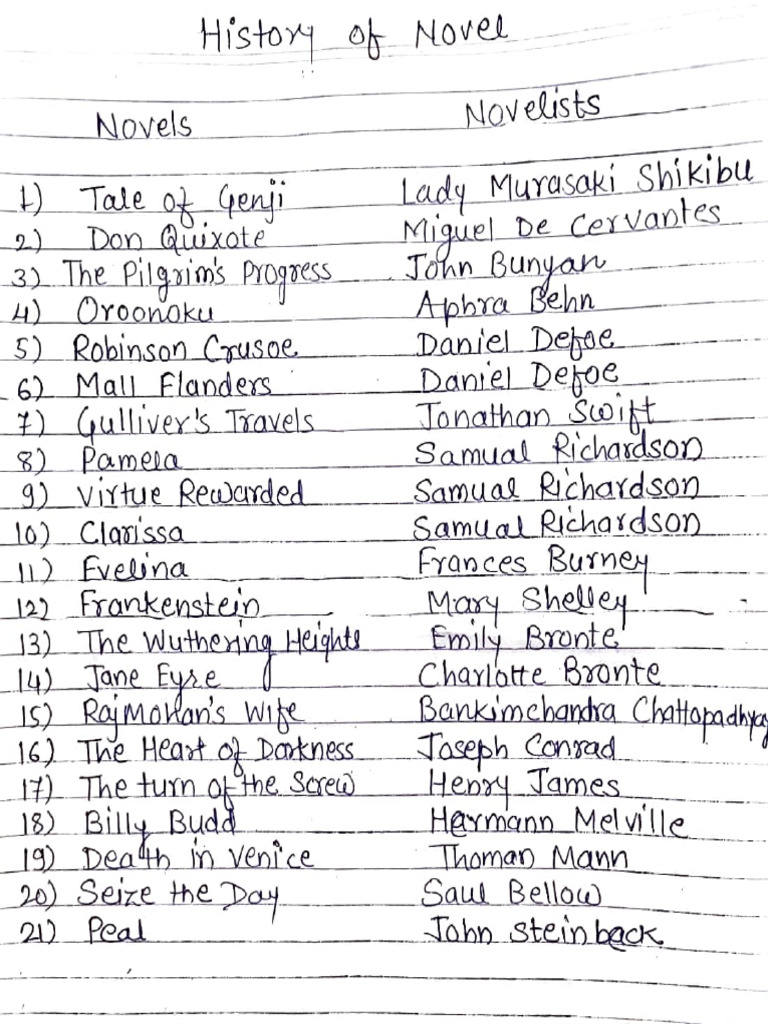 History of Novel
Novels Novelists
1) Tale of Genji Lady Murasaki Shikibu
2) Don Quixote Miguel De Cervantes
3) The Pilgrim's Progress John Bunyan
4) Oroonoku Aphra Behn
5) Robinson Crusoe Daniel Defoe
6) Mall Flanders Daniel Defoe
7) Gulliver's Travels Jonathan Swift
8) Pamela Samual Richardson
9) Virtue Rewarded Samual Richardson
10) Clarissa Samual Richardson
11) Evelina Frances Burney
12) Frankenstein Mary Shelley
13) The Wuthering Heights Emily Bronte
14) Jane Eyre Charlotte Bronte
15) RajMohan's Wife Bankimchandra Chattopadhyay
16) The Heart of Darkness Joseph Conrad
17) The turn of the Screw Henry James
18) Billy Budd Hermann Melville
19) Death in Venice Thoman Mann
20) Seize the Day Saul Bellow
21) Peal John Steinback